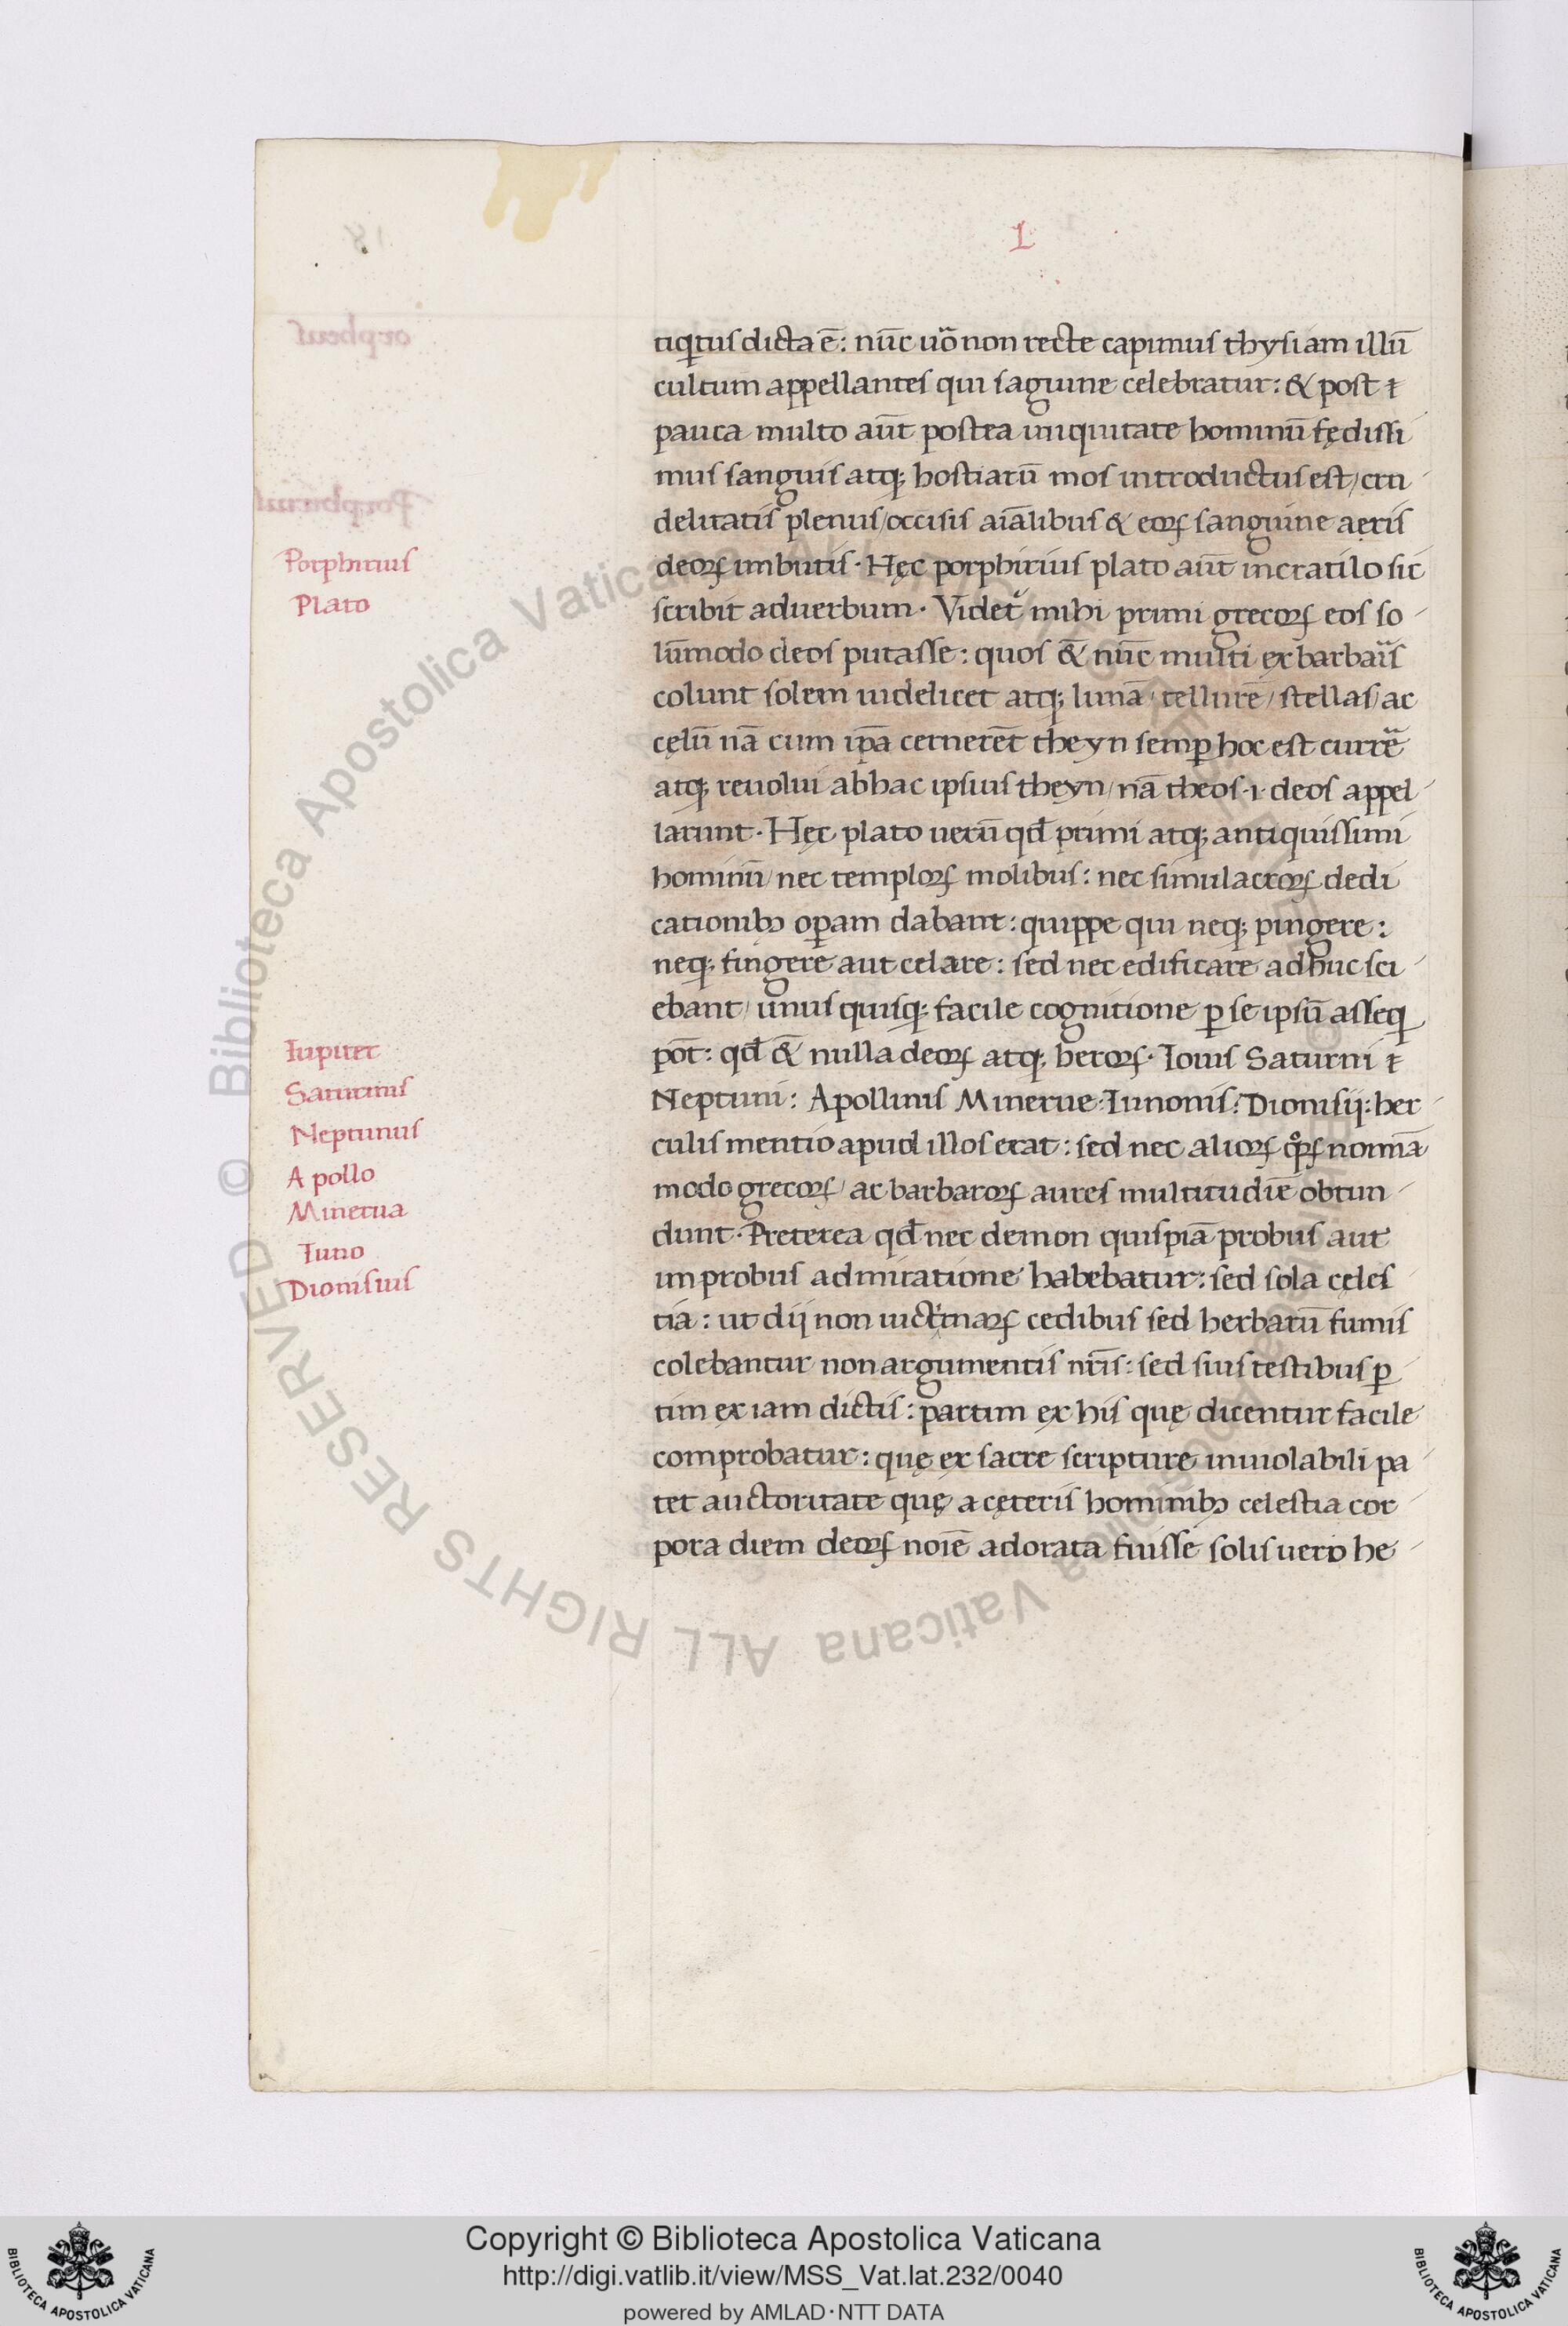 L
tiq̄tus dicta ē: nūc uō non recte capimus thysiam illū
cultum appellantes qui saguine celebratur: & post ⁊
pauca multo aūt postea iniquitate hominū fędissi
mus sanguis atq; hostiarū mos introductus est/cru
delitatis plenus/occisis aīalibus & eoꝝ sanguine aeris
deoꝝ imbutis· Hęc porphirius plato aūt incratilo sic
scribit aduerbum· Videt᷑ mihi primi grecoꝝ eos so
lūmodo deos putasse: quos &̄ nūc multi ex barbaris
colunt solem uidelicet atq; lunā/tellurē/stellas/ac
cęlū nā cum ip̄a cernerēt theyn semꝑ hoc est currē
atq; reuolui abhac ipsius theyn/nā theos·i·deos appel
larunt· Hęc plato uerū qđ primi atq; antiquissimi
hominū/nec temploꝝ molibus: nec simulacroꝝ dedi
cationibꝫ oꝑam dabant: quippe qui neq; pingere:
neq; fingere aut celare: sed nec edificare adhuc sci
ebant/unus quisq; facile cognitione ꝑ se ipsū asseq̄
pōt: qđ &̄ nulla deoꝝ atq; heroꝝ· Iouis Saturni ⁊
Neptuni: Apollinis Minerue: Iunonis: Dionisij: her
culis mentio apud illos erat: sed nec alioꝝ qͦꝝ nonnā
modo grecoꝝ/ac barbaroꝝ aures multitudīe obtun
dunt· Preterea qđ nec demon quispiā probus aut
improbus admiratione habebatur: sed sola cęles
tia: ut dij non uictimaꝝ cedibus sed herbarū fumis
colebantur non argumentis nr̄is: sed suis testibus ꝑ
tim ex iam dictis: partim ex his quę dicentur facile
comprobatur: quę ex sacre scripture inuiolabili pa
tet auctoritate quę a cęteris hominibꝫ celestia cor
pora diem deoꝝ noīe adorata fuisse solis uero he
Porphirius
Plato
Iupiter
Saturnus
Neptunus
Apollo
Minerua
Iuno
Dionisius
© Biblioteca Apostolica Vaticana ALL RIGHTS RESERVED
Copyright © Biblioteca Apostolica Vaticana
http://digi.vatlib.it/view/MSS_Vat.lat.232/0040
powered by AMLAD·NTT DATA
BIBLIOTECA APOSTOLICA VATICANA
BIBLIOTECA APOSTOLICA VATICANA